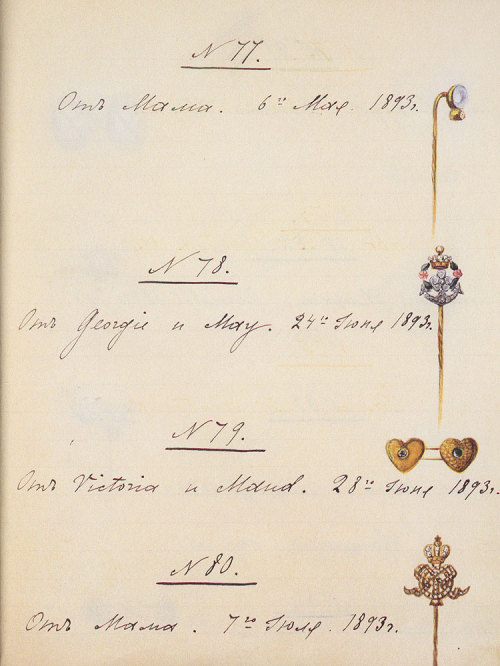 N 77.
Отъ Мама. 6го Мая. 1893г.
N 78.
Отъ Georgie и May. 24го Июня 1893г.
N 79.
Отъ Victoria и Maud. 28го Июня 1893г.
N 80.
Отъ Мама. 7го Июля. 1893г.